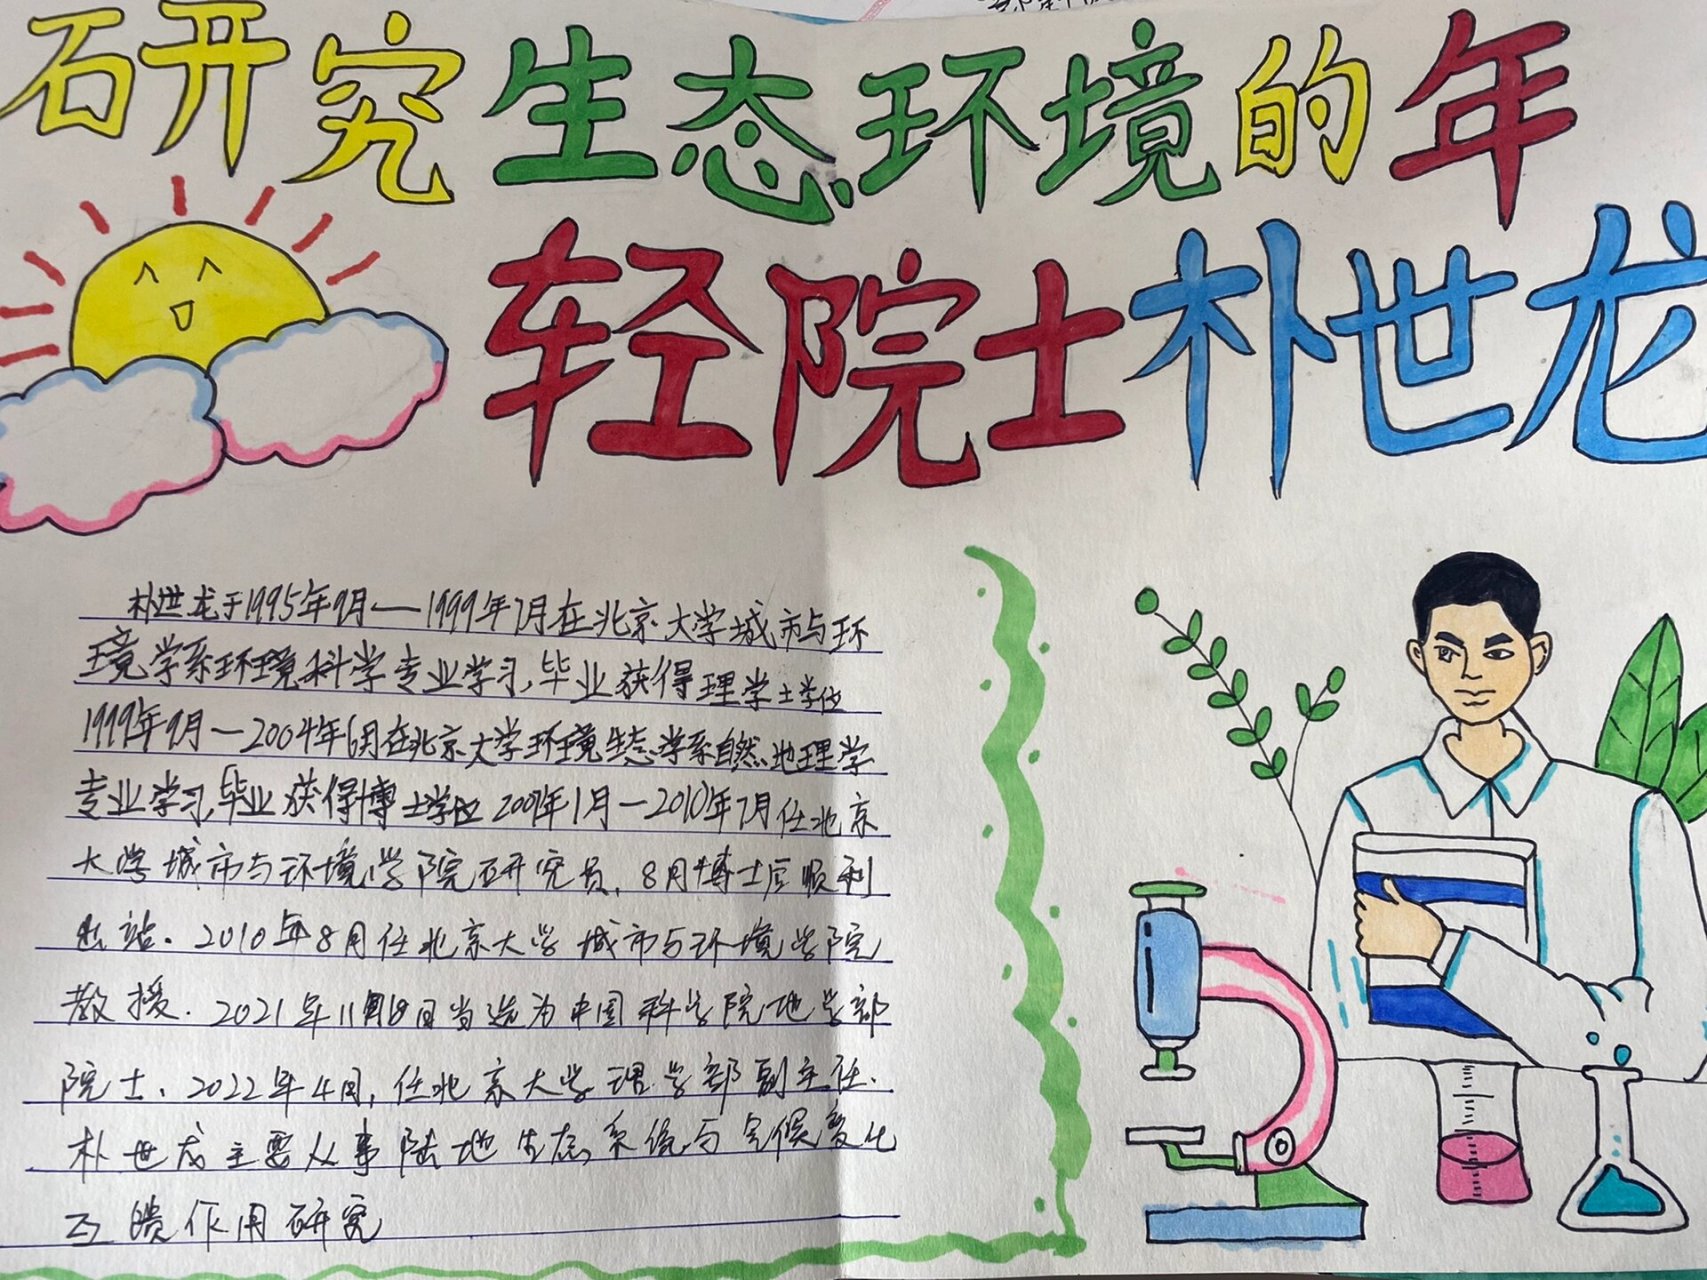 研究生态环境的年
轻院士朴世龙
朴世龙于1995年9月—1999年7月在北京大学城市与环
境学系环境科学专业学习,毕业获得理学士学位
1999年9月—2004年6月在北京大学环境生态学系自然地理学
专业学习,毕业获得博士学位 2007年1月—2010年7月任北京
大学城市与环境学院研究员,8月博士后顺利
出站.2010年8月任北京大学城市与环境学院
教授.2021年11月18日当选为中国科学院地学部
院士、2022年4月,任北京大学理学部副主任.
朴世龙主要从事陆地生态系统与气候变化
互馈作用研究